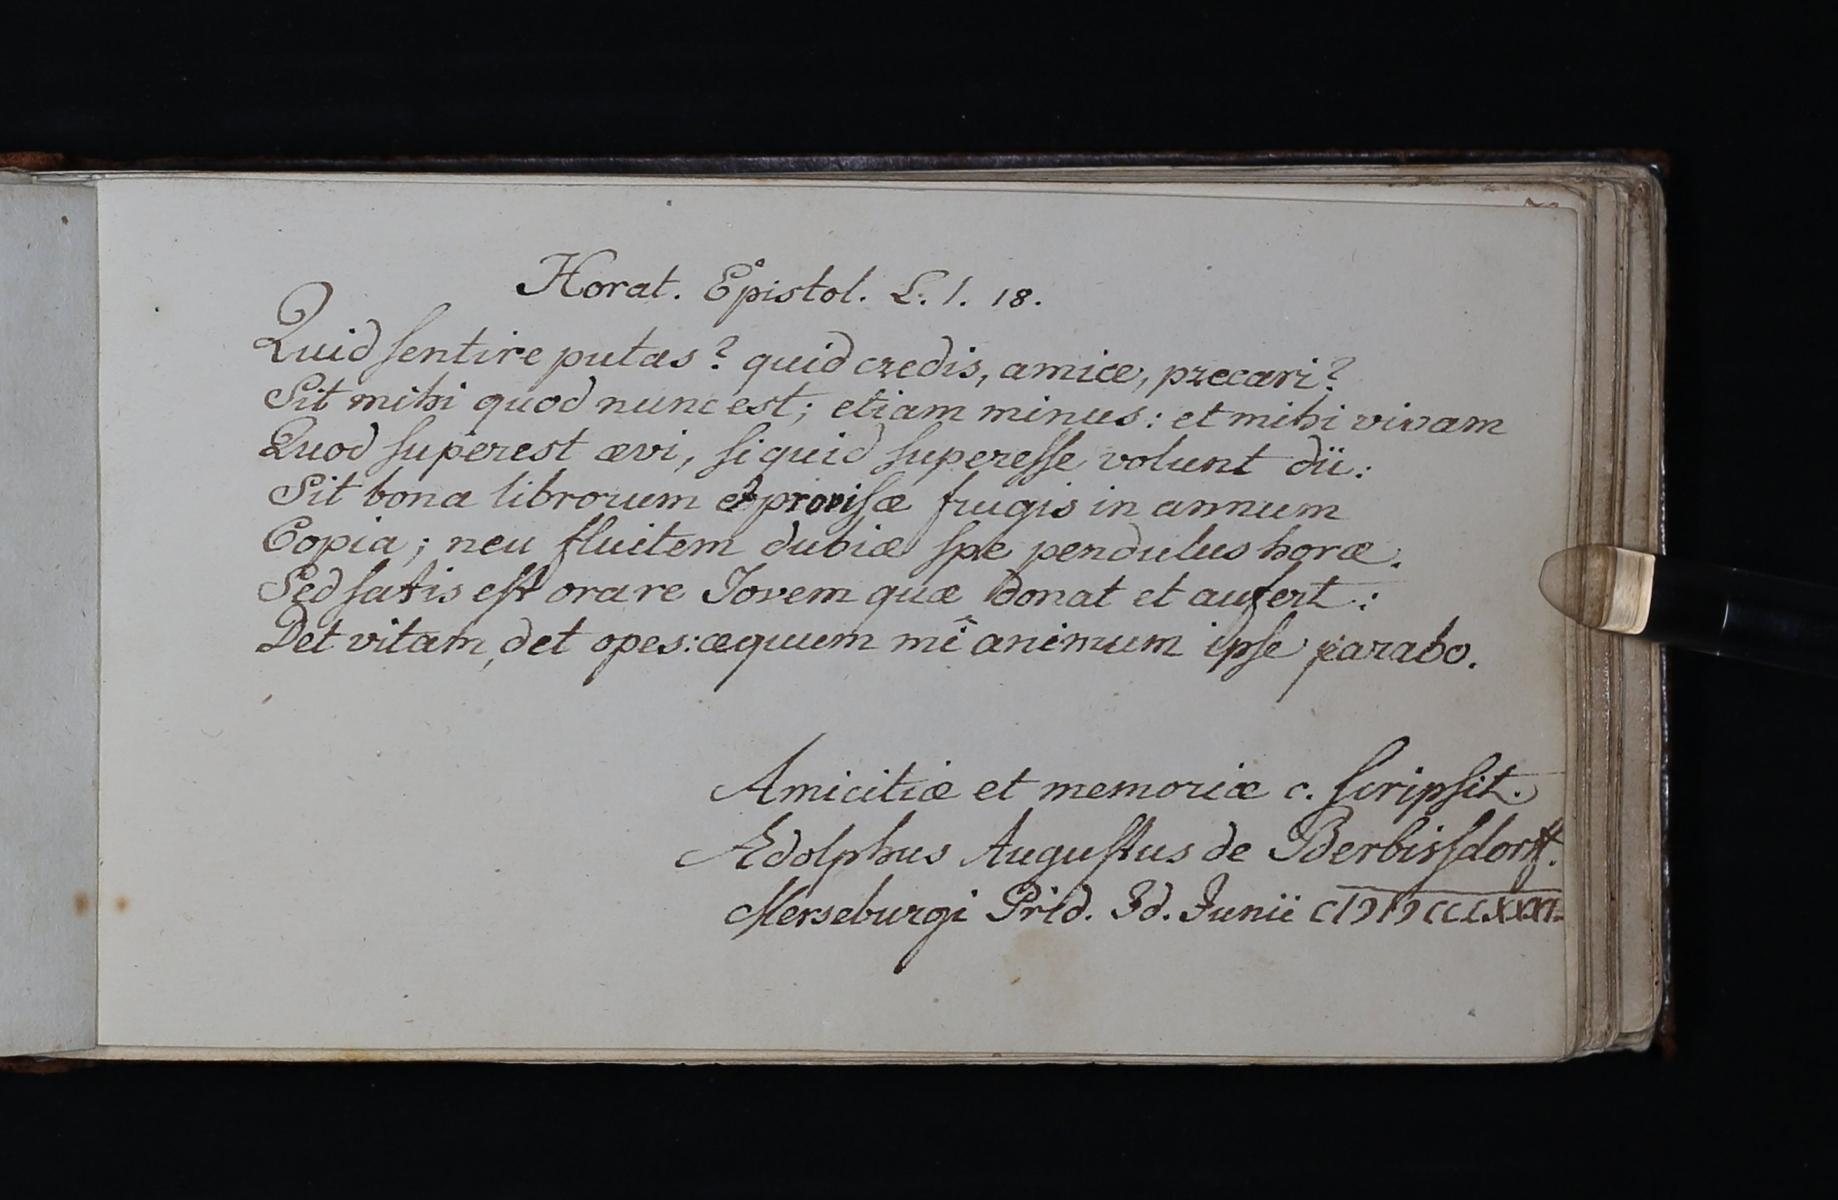 Horat. Epistol. L. 1. 18.
Quid sentire putas? quid credis, amice, precari?
Sit mihi quod nunc est; etiam minus: et mihi vivam
Quod superest ævi, siquid superesse volunt dii:
Sit bona librorum et provisæ frugis in annum
Copia; neu fluitem dubiæ spe pendulus horæ.
Sed satis est orare Jovem quæ donat et aufert:
Det vitam, det opes: æquum mî animum ipse parabo.
Amicitiæ et memoriæ c. scripsit.
Adolphus Augustus de Berbissdorff.
Merseburgi Prid. Id. Junii